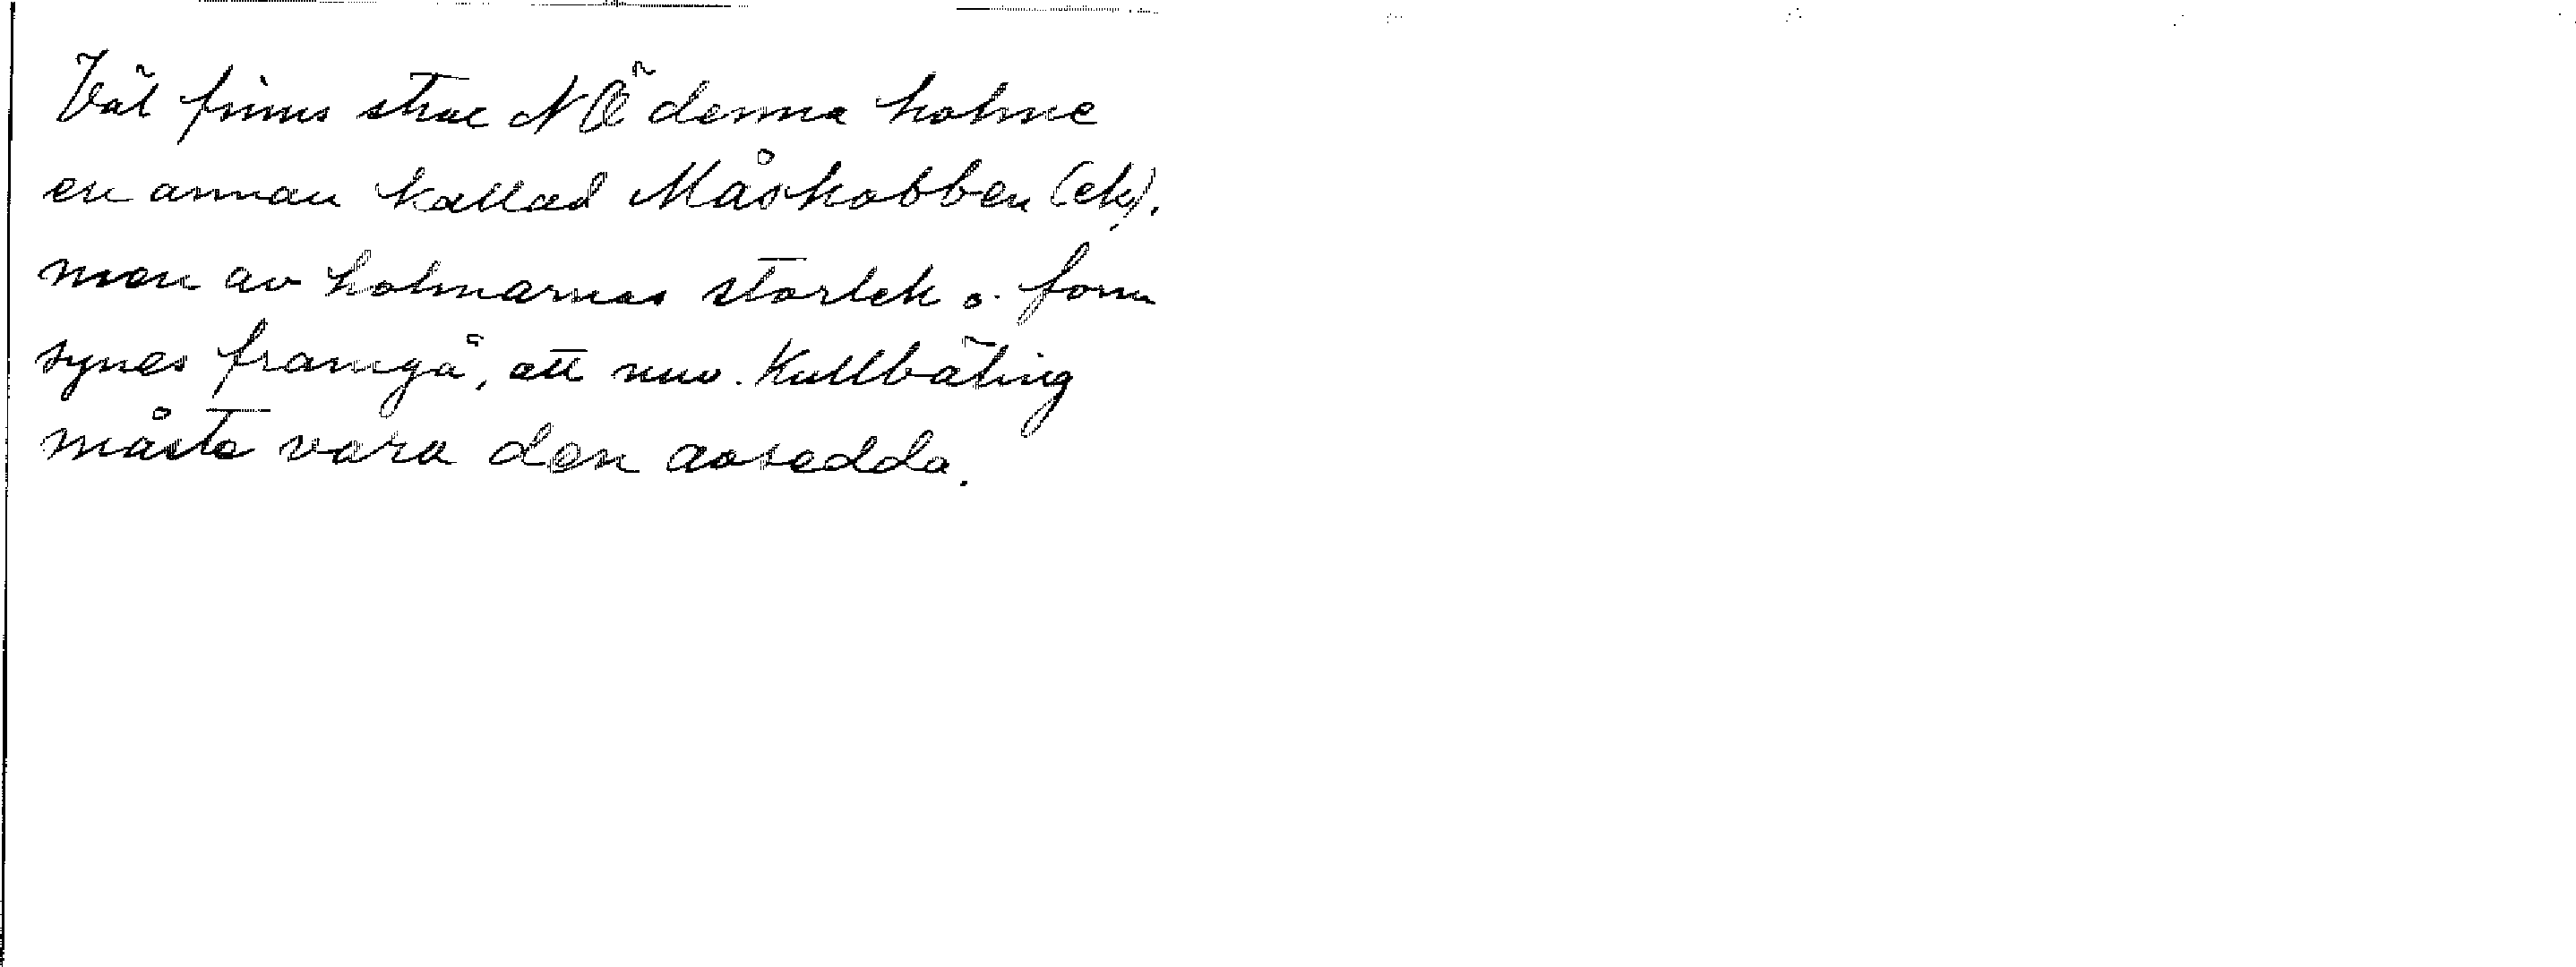 Väl finns strax NÖ denna holme
en annan kallad Måskobben (ek),
men av holmarnas storlek o. form
synes framgå, att nuv. Kullbåting
måste vara den avsedda.